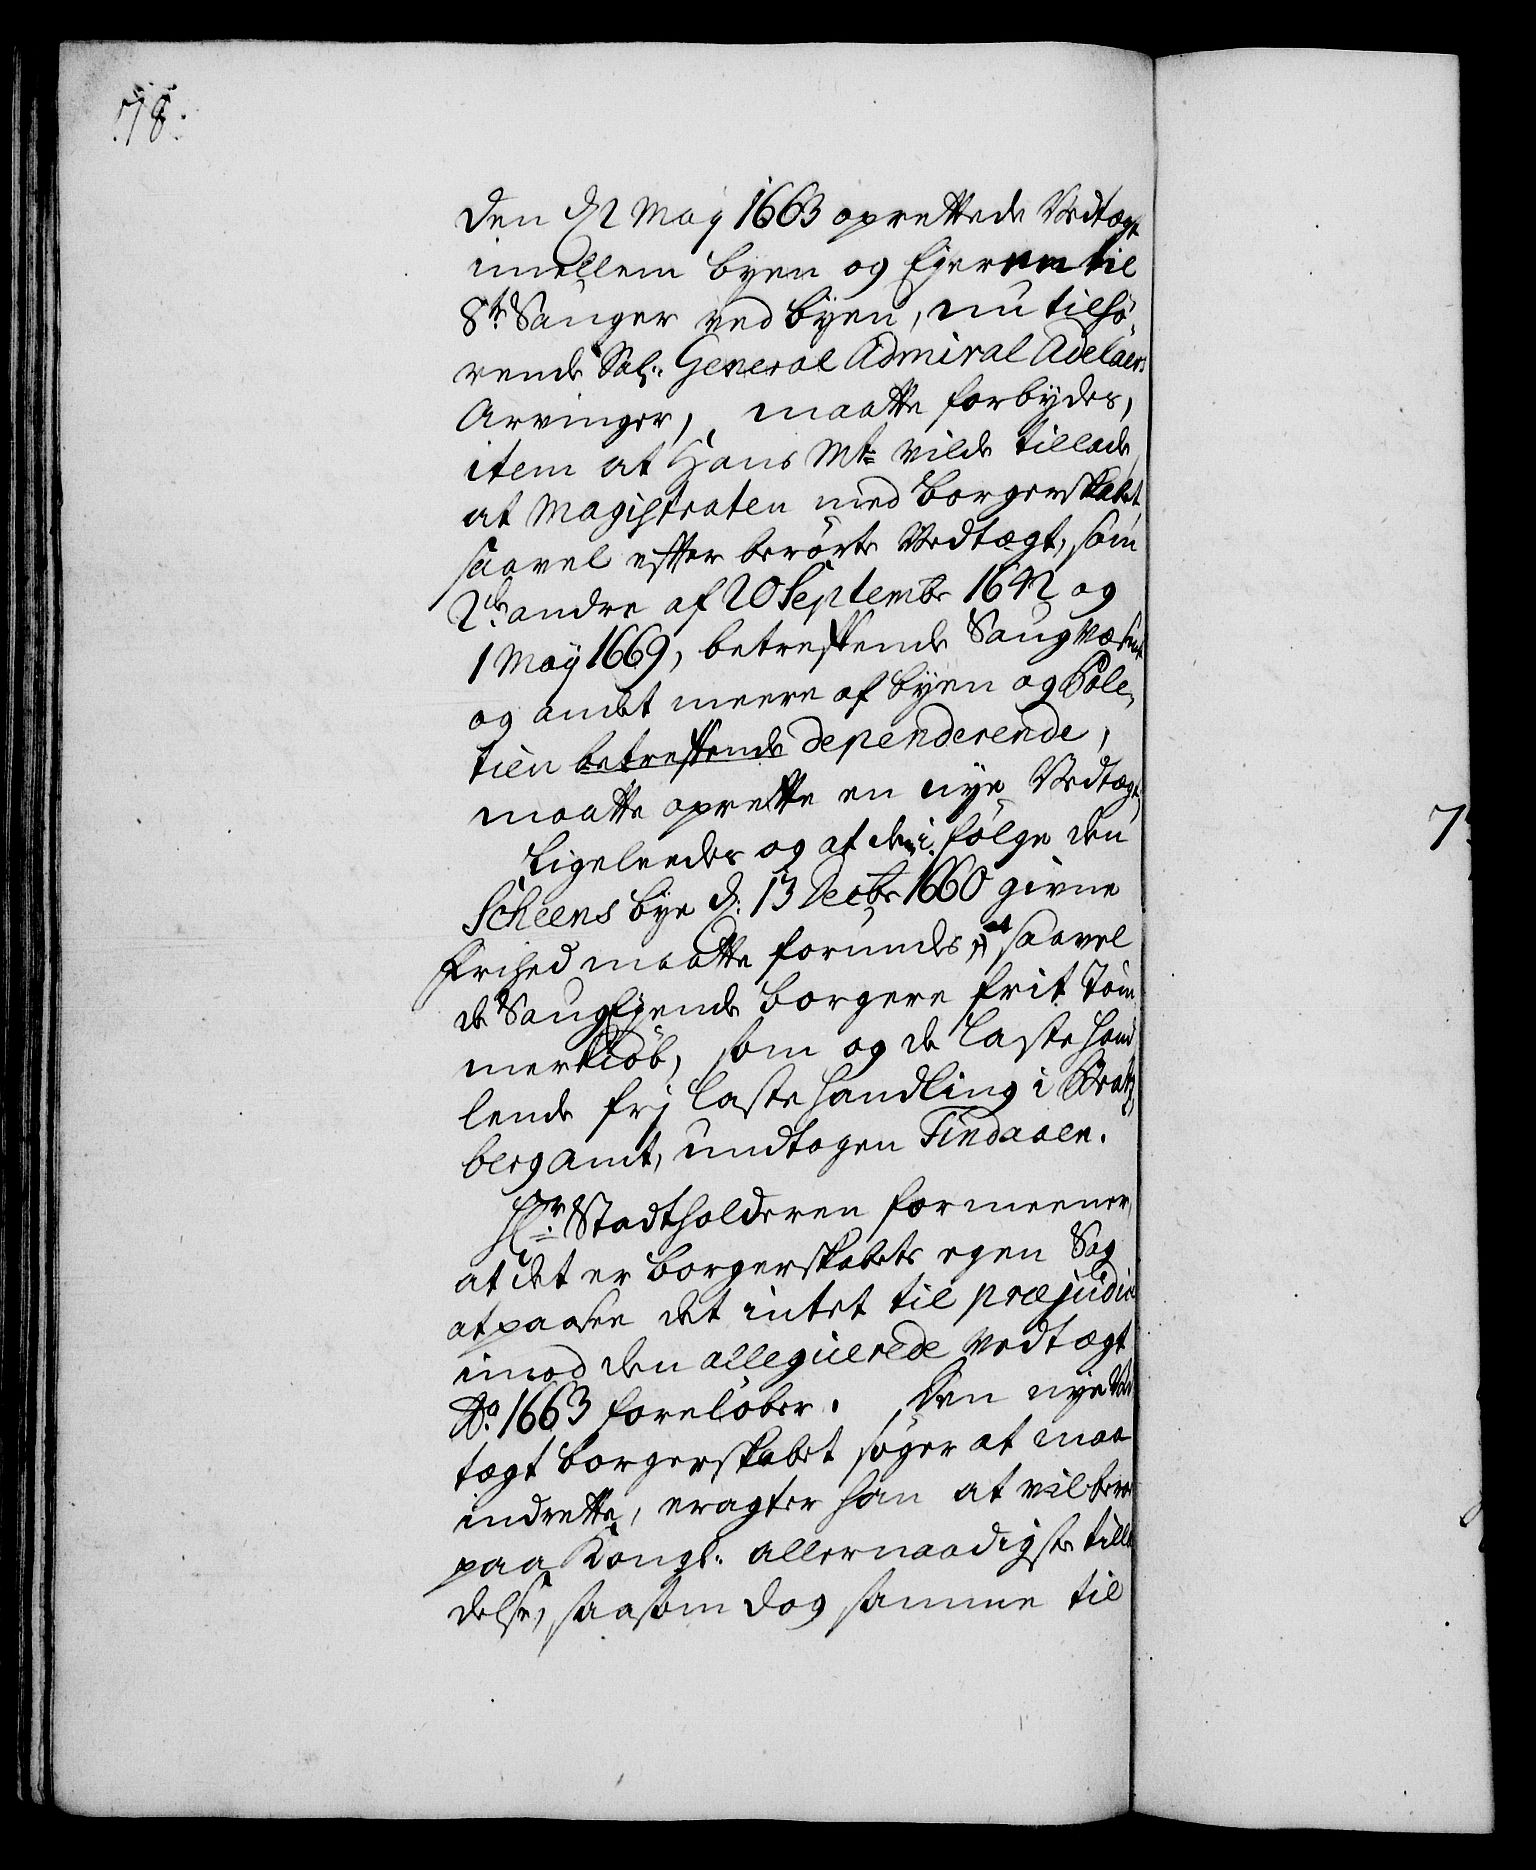 78.
den 2 Maÿ 1663 oprettede Vedtægt
imellem byen og Eiererne til
8te Sauger ved byen, nu tilhø-
rende Sal: General Admiral Adelaers
Arvinger, maatte forbydes,
item at Hans Mt= vilde tillade,
at Magistraten med borgerskabet
saavel efter berørte Vedtægt, som
2de andre af 20 Septembr 1642 og
1 Maÿ 1669, betreffende Saugvæsenet
og andet meere af byen og Pole-
tien betreffende dependerende,
maatte oprette en nye Vedtægt,
Ligeleedes og at de i følge den
Scheens bye d. 13 Decbr 1660 givne
Frihed maatte forundes, at saavel
de Saugeÿende borgere frit Tøm-
merkiøb, som og de lastehand-
lende frj lastehandling i Bratz-
berg amt, undtagen Tindaaen.
Hr. Stadtholderen formeener,
at det er borgerskabets egen Sag
at paasee det intet til præjudice
imod den alleguerede Vedtægt
Ao. 1663 foreløber. Den nye Ved-
tægt borgerskabet søger at maa
indrette, eragter han at vil beroe
paa Kongl. allernaadigste tilla-
delse, saasom dog samme til
7